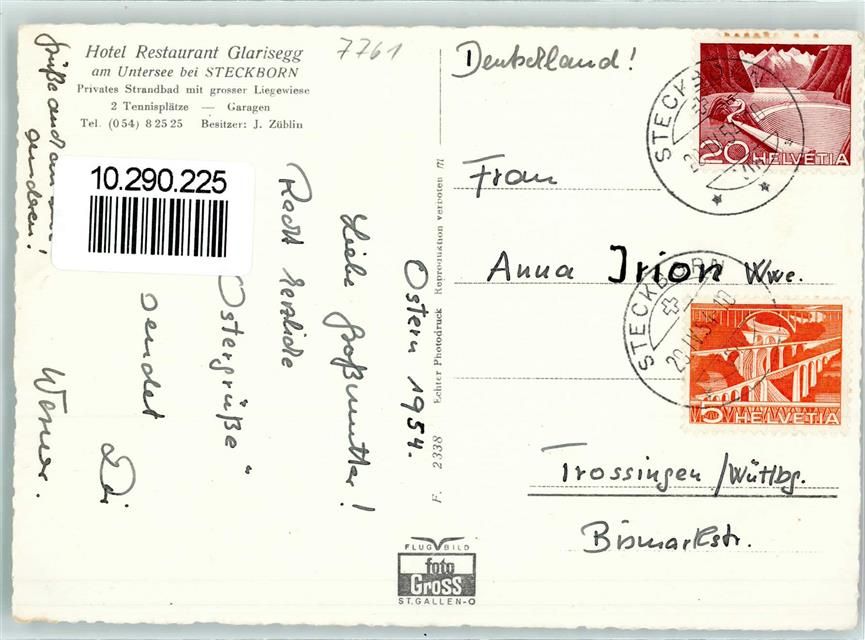 Hotel Restaurant Glarisegg
am Untersee bei STECKBORN
Privates Strandbad mit grosser Liegewiese
2 Tennisplätze — Garagen
Tel. (054) 8 25 25 Besitzer: J. Züblin
7761
10.290.225
Ostern 1954.
Liebe Großmutter!
Recht herzliche
Ostergrüße"
sendet Dir
Werner.
Grüße auch an
anderen!
F. 2338 Echter Photodruck Reproduktion verboten
FLUG BILD
foto
Gross
ST. GALLEN-O
Deutschland!
Frau
Anna Irion Wwe.
Trossingen /Württbg.
Bismarckstr.
20 HELVETIA
STECKBORN
5 HELVETIA
STECKBORN